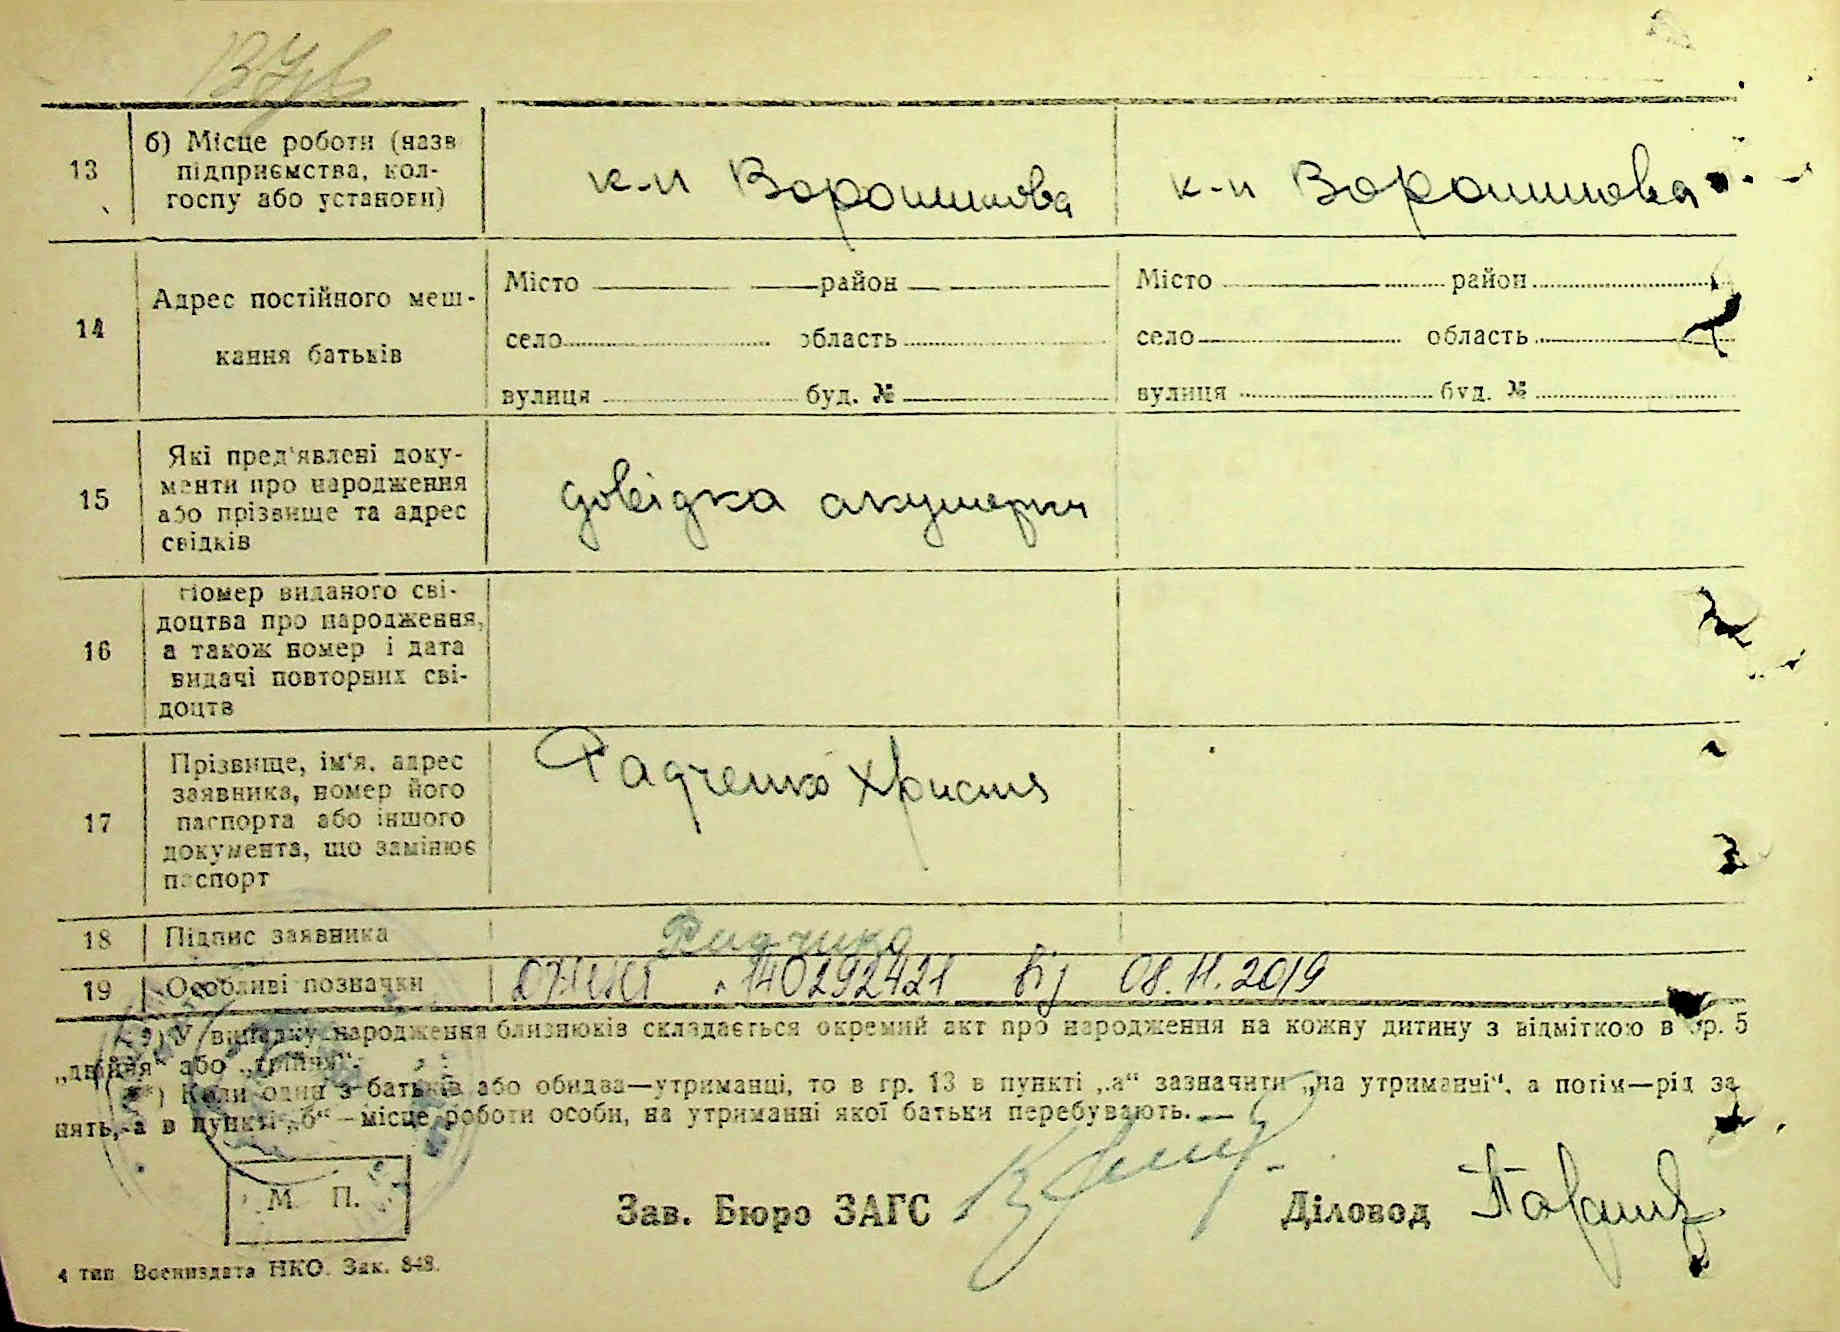 13
б) Місце роботи (назв
підприємства, кол-
госпу або установи)
к-п Ворошилова
к-п Ворошилова
14
Адрес постійного меш-
кання батьків
Місто район
село область
вулиця буд. №
Місто район
село область
вулиця буд. №
15
Які пред'явлені доку-
менти про народження
або прізвище та адрес
свідків
довідка акушерки
16
Номер виданого сві-
доцтва про народження,
а також номер і дата
видачі повторних сві-
доцтв
17
Прізвище, ім'я, адрес
заявника, номер його
паспорта або іншого
документа, що замінює
паспорт
Радченко Христя
18
Підпис заявника
19
Особливі позначки
140292421 від 08.11.2019
*) У випадку народження близнюків складається окремий акт про народження на кожну дитину з відміткою в гр. 5
„двійня“ або „трійня“.
**) Коли один з батьків або обидва—утриманці, то в гр. 13 в пункті „а“ зазначити „на утриманні“, а потім—рід за
нять, а в пункті „б“ – місце роботи особи, на утриманні якої батьки перебувають.
М. П.
Зав. Бюро ЗАГС
Діловод
4 тип Воениздата НКО. Зак. 848.